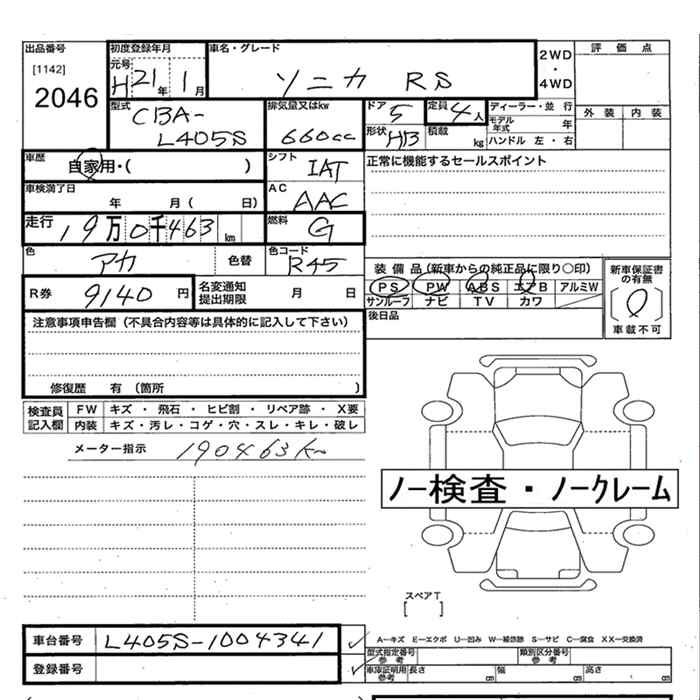 出品番号
[1142]
2046
初度登録年月
元号
H 21年 1月
車名・グレード
ソニカ RS
2WD
・
4WD
評価点
外装 内装
型式
CBA-
L405S
排気量又はkw
660cc
ドア
5
形状
HB
定員
4人
積載
kg
ディーラー・並行
モデル年式 年
ハンドル 左・右
車歴
自家用・( )
シフト
IAT
正常に機能するセールスポイント
車検満了日
年 月( 日)
AC
AAC
走行
19万0千463km
燃料
G
色
アカ
色替
色コード
R45
装備品(新車からの純正品に限り○印)
PS PW ABS エアB アルミW
サンルーフ ナビ TV カワ
新車保証書の有無
[0]
車載不可
R券
9140円
名変通知提出期限
月 日
後日品
注意事項申告欄(不具合内容等は具体的に記入して下さい)
修復歴 有(箇所 )
検査員記入欄
FW キズ・飛石・ヒビ割・リペア跡・X要
内装 キズ・汚レ・コゲ・穴・スレ・キレ・破レ
メーター指示 190463km
ノー検査・ノークレーム
スペアT
[ ]
車台番号 L405S-1004341
登録番号
A―キズ E―エクボ U―凹み W―補修跡 S―サビ C―腐食 XX―交換済
型式指定番号 参考 類別区分番号 参考
車庫証明用 参考 長さ cm 幅 cm 高さ cm